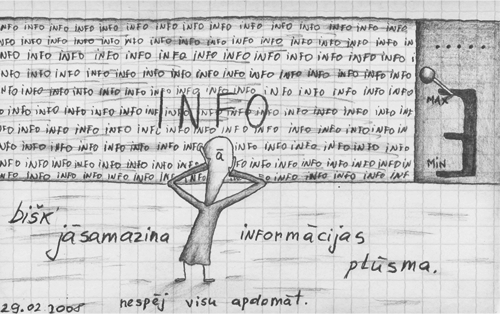 INFO INFO INFO INFO INFO INFO INFO INFO INFO INFO INFO INFO INFO INFO INFO
NFO INFO INFO INFO INFO INFO INFO INFO INFO INFO INFO INFO INFO INFO IN
INFO INFO INFO INFO INFO INFO INFO INFO INFO INFO INFO INFO INFO INFO IN
INFO INFO INFO INFO INFO INFO INFO INFO INFO INFO INFO INFO INFO INFO INFO
INFO INFO INFO INFO INFO INFO INFO INFO INFO INFO INFO INFO INFO INFO
MAX
INFO
NFO INFO INFO INFO INFO INFO INFO INFO INFO INFO INFO INFO INFO
INFO INFO INFO INFO INFO INFO INFO INFO INFO INFO INFO INFO INFO
INFO INFO INFO INFO INFO INFO INFO INFO INFO INFO INFO INFO INFO
ā
NFO INFO INFO INFO INFO INFO INFO INFO INFO INFO INFO INFO IN
MIN
INFO INFO INFO INFO INFO INFO INFO INFO INFO INFO INFO INFO INF
bišk'
jāsamazina informācijas
plūsma.
29.02.2008 nespēj visu apdomāt.